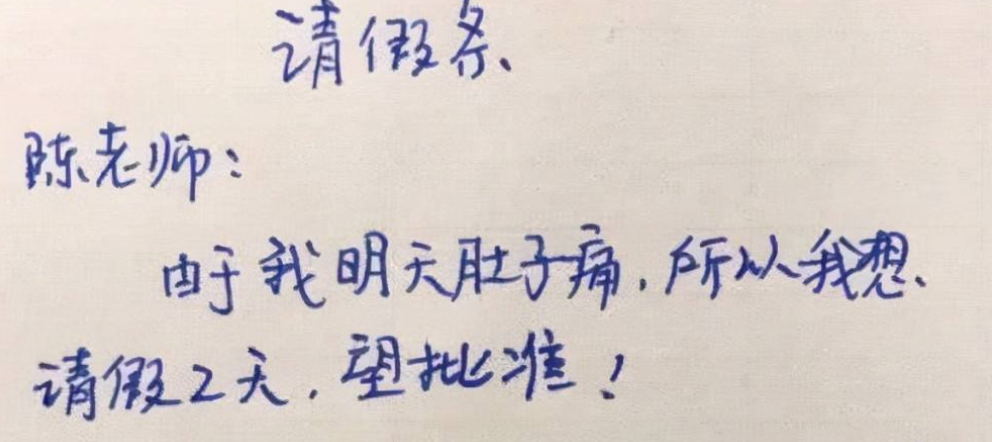 请假条
陈老师：
由于我明天肚子痛，所以我想
请假2天，望批准！